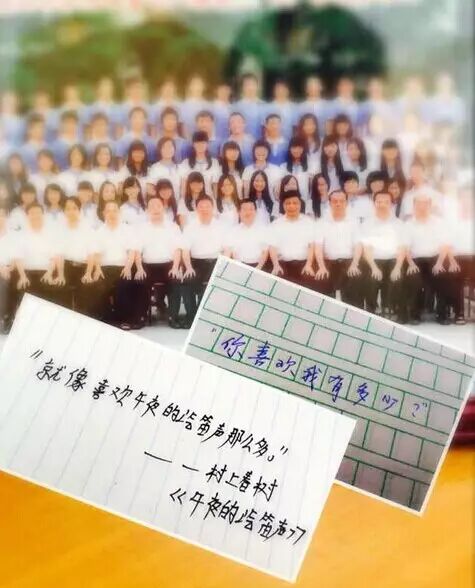 "你喜欢我有多？"
"就像喜欢午夜的汽笛声那么多。"
——村上春树
《午夜的汽笛声》